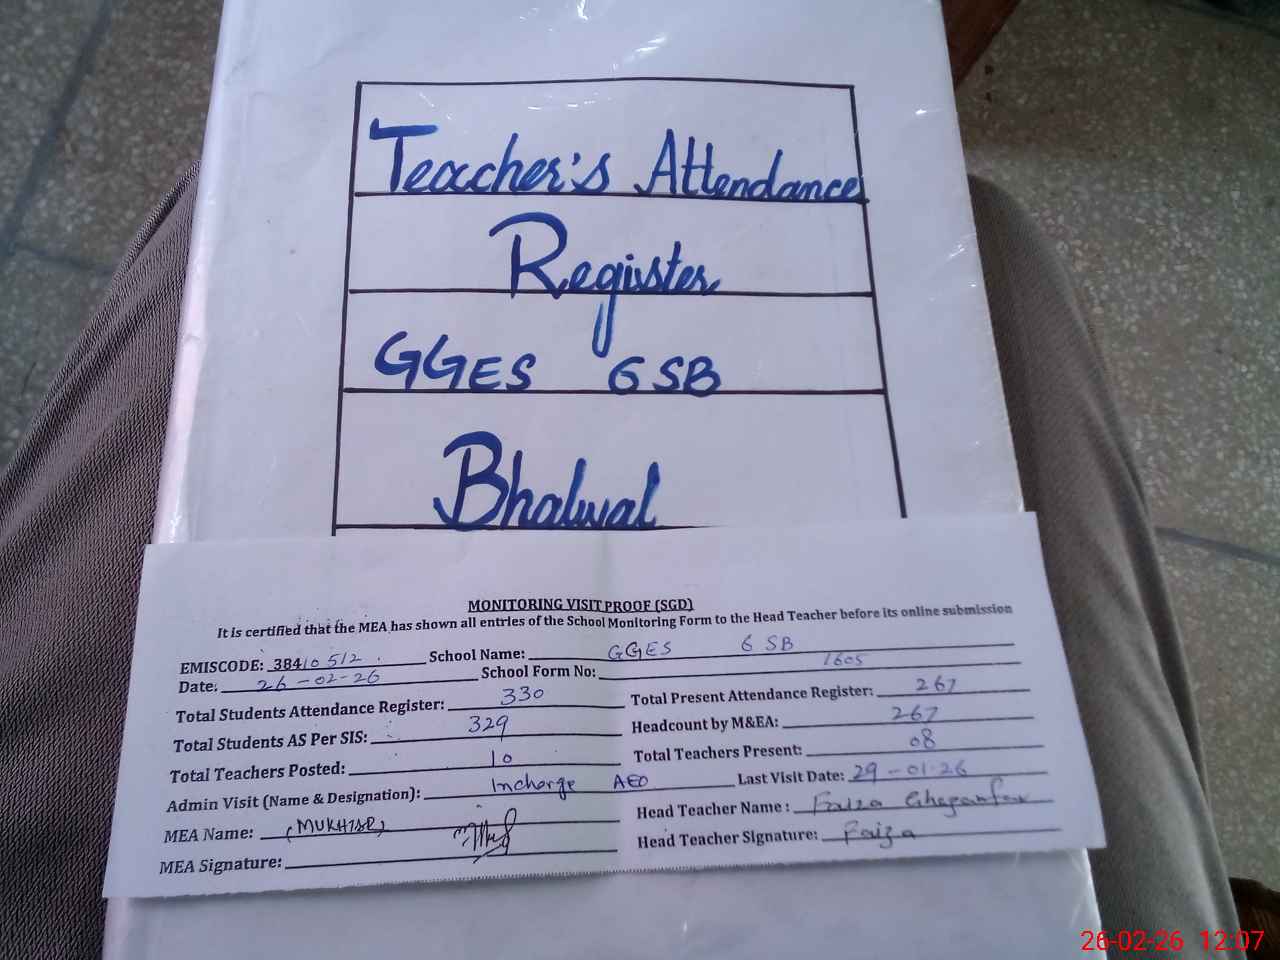 Teacher's Attendance
Register
GGES 6 SB
Bhalwal
MONITORING VISIT PROOF (SGD)
It is certified that the MEA has shown all entries of the School Monitoring Form to the Head Teacher before its online submission
EMISCODE: 38410512 School Name: GGES 6 SB
Date: 26-02-26 School Form No: 1605
Total Students Attendance Register: 330 Total Present Attendance Register: 267
Total Students AS Per SIS: 329 Headcount by M&EA: 267
Total Teachers Posted: 10 Total Teachers Present: 08
Admin Visit (Name & Designation): Incharge AEO Last Visit Date: 29-01-26
MEA Name: (MUKHTAR) Head Teacher Name: Faiza Ghazanfar
MEA Signature: Head Teacher Signature: Faiza
26-02-26 12:07